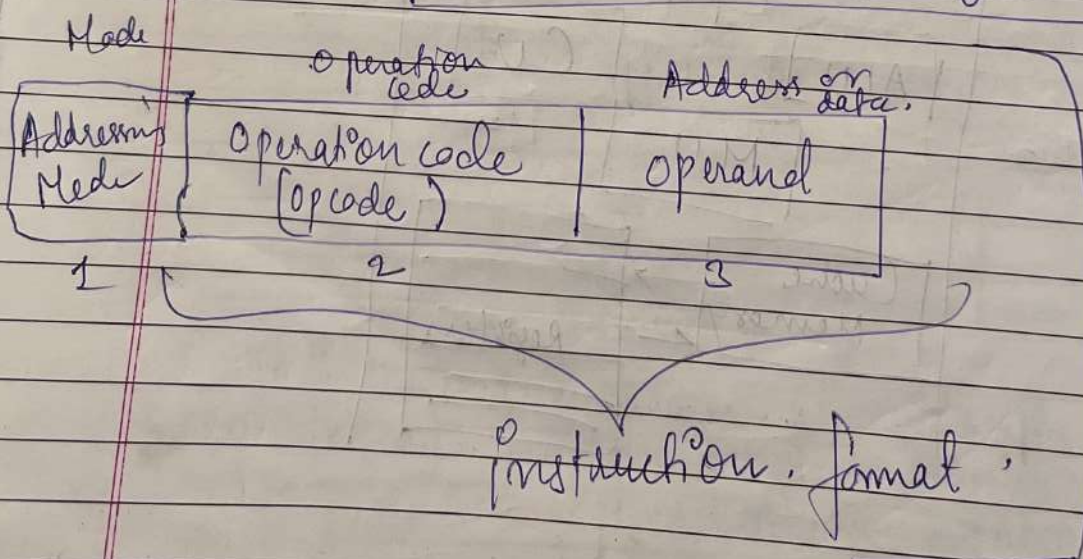 Mode
Operation
code
Address or
data.
Addressing
Mode
Operation code
(opcode)
operand
1
2
3
instruction. format.